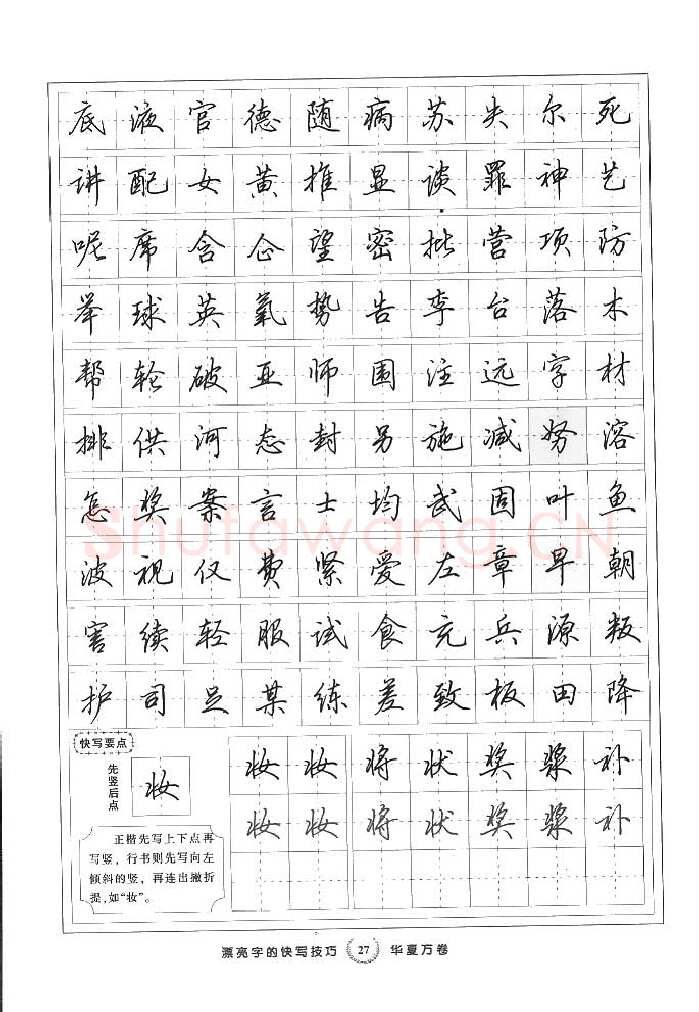 底液官德随病苏失尔死
讲配女黄推显谈罪神艺
呢席含企望密批营项防
举球英氧势告李台落木
帮轮破亚师围注远字材
排供河态封另施减努溶
怎奖案言士均武固叶鱼
Shufawang.CN
波视仅费紧爱左章早朝
害续轻服试食充兵源叛
护司足某练差致板田降
快写要点
先竖后点
妆
正楷先写上下点再
写竖，行书则先写向左
倾斜的竖，再连出撇折
提，如“妆”。
妆妆将状奖浆补
妆妆将状奖浆补
漂亮字的快写技巧 27 华夏万卷